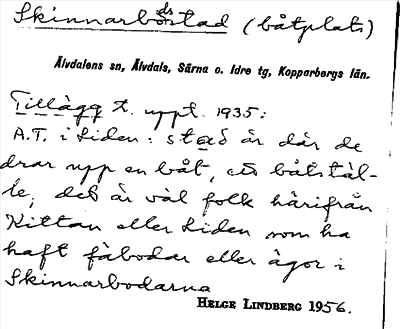 Skinnarbodsstad (båtplats)
Älvdalens sn, Älvdals, Särna o. Idre tg, Kopparbergs län.
Tillägg t. uppt. 1935:
A.T. i Liden: stad är där de
drar upp en båt, ett båtstäl-
le, det är väl folk härifrån
Kittan eller Liden som ha
haft fäbodar eller ägor i
Skinnarbodarna
HELGE LINDBERG 1956.